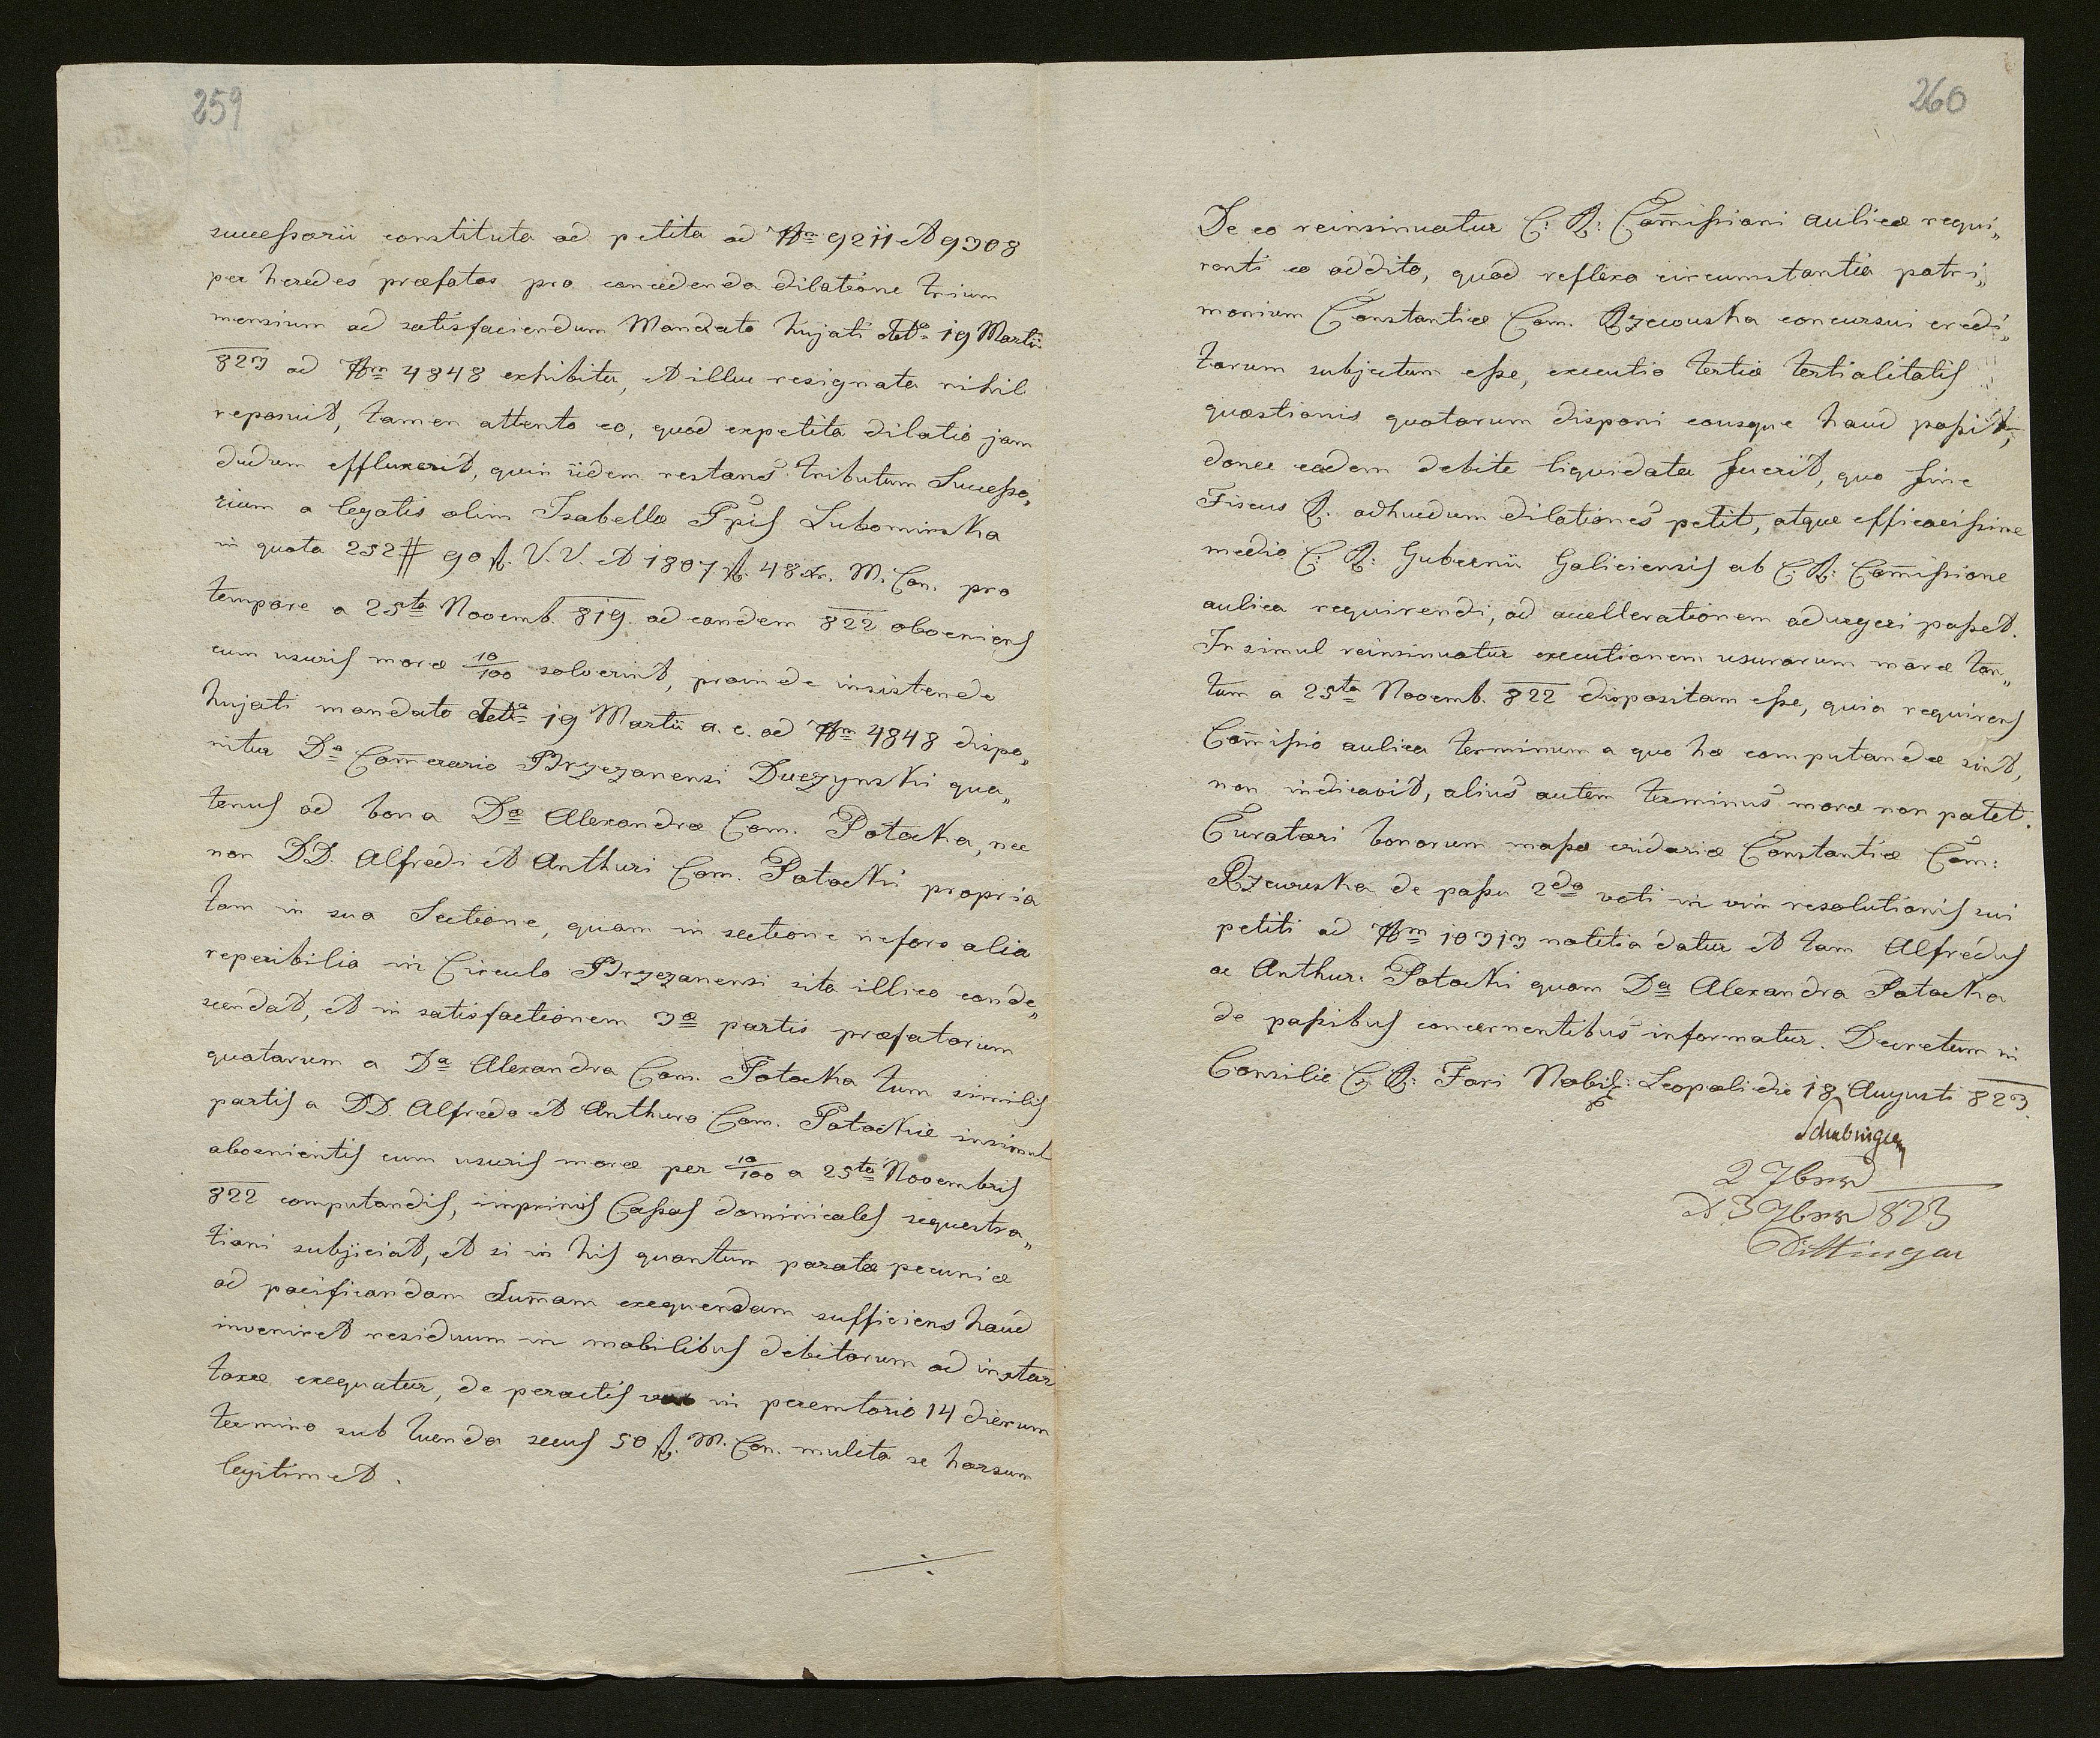 259
successorii constituta ad petita ad Nrm 9211 et 9308
per heredes præfatos pro concedenda dilatione trium
mensium ad satisfaciendum Mandato hujati ddto 19 Martii
823 ad Nrm 4848 exhibita, et illuc resignata nihil
reposuit, tamen attento eo, quod expetita dilatio jam
dudum effluxerit, quin iidem restans tributum Successo„
rium a legatis olim Isabellæ Ppis Lubomirska
in quota 252 # 90 f. V. V. et 1807 f. 48 xr. M. Con. pro
tempore a 25ta Novemb. 819. ad eandem 822 obveniens
cum usuris moræ 10/100 solverint, proinde insistendo
hujati mandato ddto 19 Martii a. c. ad Nrm 4848 dispo„
nitur Do Comerario Brzezanensi Duczynski qua„
tenus ad bona Dæ Alexandræ Com. Potocka, nec
non DD. Alfredi et Anthuri Com. Potockii propria
tam in sua Sectione, quam in sectione nefors alia
reperibilia in Circulo Brzezanensi sita illico conde„
scendat, et in satisfactionem 3æ partis præfatorum
quotarum a Da Alexandra Com. Potocka tum similis
partis a DD. Alfredo et Anthuro Com. Potockie insimul
obvenientis cum usuris moræ per 10/100 a 25ta Novembris
822 computandis, imprimis Cassas dominicales sequestra„
tioni subjiciat, et si in his quantum paratæ pecuniæ
ad pacificandam Sumam exequendam sufficiens haud
inveniret residuum in mobilibus debitorum ad instar
taxæ exequatur, de peractis in peremtorio 14 dierum
termino sub luenda secus 50 f. M. Con. mulcta se horsum
legitimet.
260
De eo reinsinuatur C: R: Comissioni aulicæ requi„
renti eo addito, quod reflexa circumstantia patri„
monium Constantiæ Com. Rzewuska concursui credi„
torum subjectum esse, executio tertiæ tertialitatis
quæstionis quotarum disponi eousque haud possit,
donec eadem debite liquidata fuerit, quo fine
Fiscus R. adhucdum dilationes petit, atque efficacissime
medio C: R: Gubernii Galiciensis ab C: R: Comissione
aulica requirendi, ad accellerationem adurgeri posset.
In simul reinsinuatur executionem usurarum moræ tan„
tum a 25ta Novemb. 822 dispositam esse, quia requirens
Comissio aulica terminum a quo hæ computandæ sint,
non indicavit, alius autem terminus moræ non patet.
Curatori bonorum massæ cridariæ Constantiæ Com:
Rzewuska de passu 2do voti in vim resolutionis sui
petiti ad Nrm 10313 notitia datur et tam Alfredus
ac Anthur. Potocki quam Da Alexandra Potocka
de passibus concernentibus informatur. Decretum in
Consilio C: R: Fori Nobil: Leopoli die 18 Augusti 823.
2 7bris
et 3 7bris 823